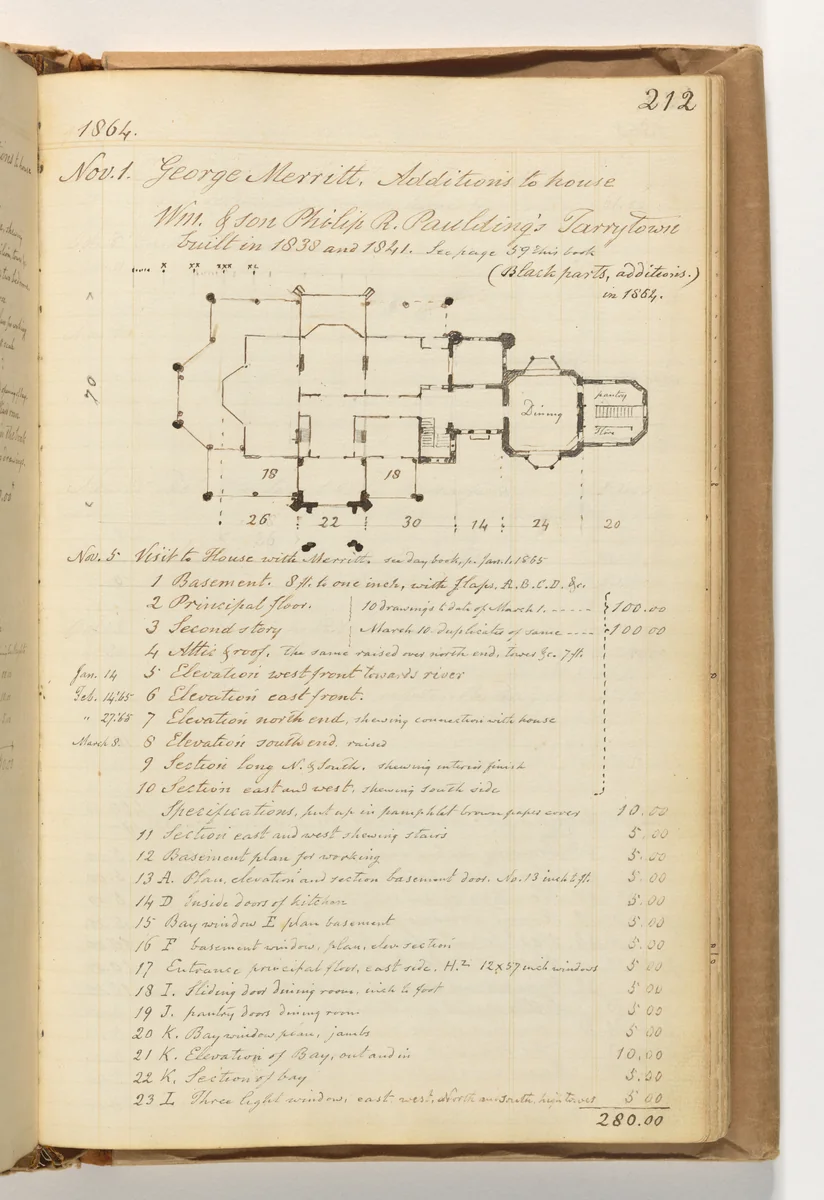 212
1864.
Nov. 1. George Merritt. Additions to house
Wm. & son Philip R. Paulding's Tarrytown
built in 1838 and 1841. See page 59 this book
(Black parts, additions.)
in 1864.
70
Dining
pantry
Store
18 18
26 22 30 14 24 20
Nov. 5 Visit to House with Merritt. see day book, p. Jan. 1. 1865
1 Basement. 8 ft. to one inch, with flaps, A. B. C. D. &c.
2 Principal floor. 10 drawings to date of March 1. 100.00
3 Second story March 10. duplicates of same 100 00
4 Attic & roof. The same raised over north end, tower &c. 7 ft.
Jan. 14 5 Elevation west front towards river
Feb. 14.'65 6 Elevation east front.
" 27.'65 7 Elevation north end, shewing connection with house
March 8. 8 Elevation south end. raised
9 Section long N. & South. shewing interior finish
10 Section east and west, shewing south side
Specifications, put up in pamphlet brown paper cover 10.00
11 Section east and west shewing stairs 5.00
12 Basement plan for working 5.00
13 A. Plan, elevation and section basement door. No. 13 inch to ft. 5.00
14 D Inside doors of kitchen 5.00
15 Bay window E plan basement 5.00
16 F basement window, plan, elev. section 5.00
17 Entrance principal floor, east side, H.2 12x57 inch windows 5 00
18 I. Sliding door dining room. inch to foot 5 00
19 J. pantry doors dining room 5 00
20 K. Bay window plan, jambs 5 00
21 K. Elevation of Bay, out and in 10.00
22 K. Section of bay 5.00
23 L Three light window, east west. North and South. high tower 5 00
280.00